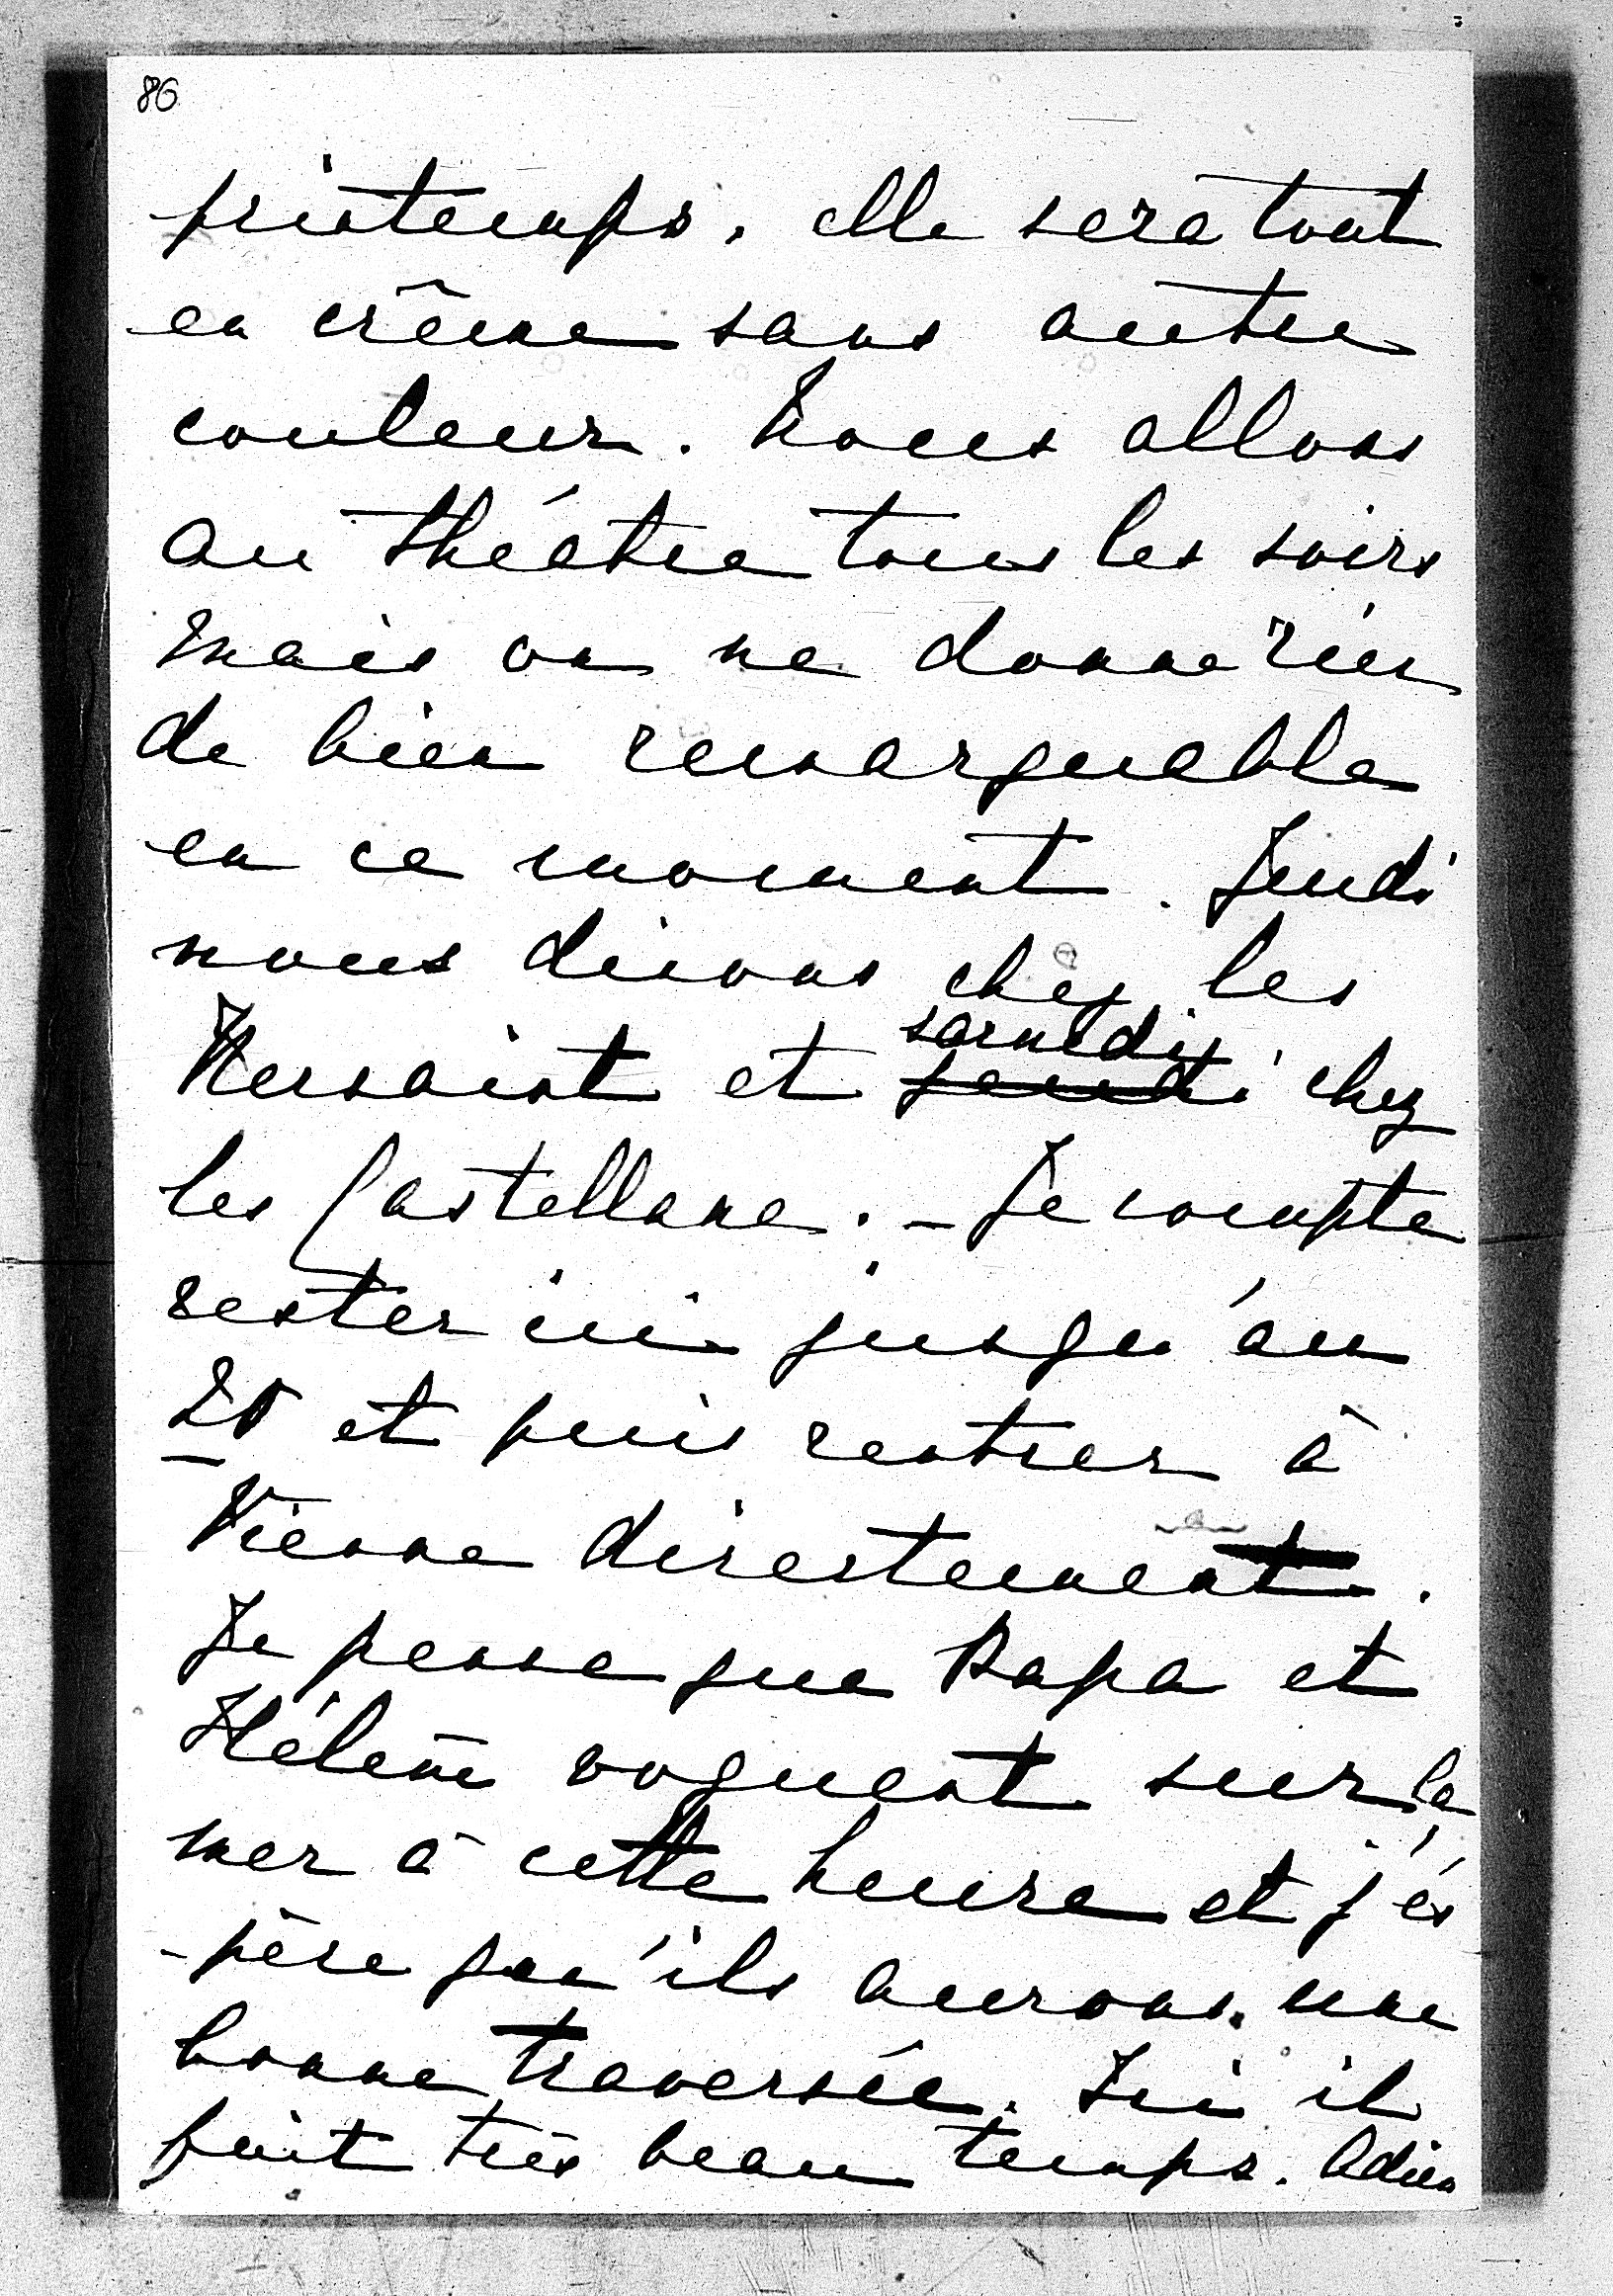 86
printemps, elle sera tout
en crême sans autre
couleur. Nous allons
au théatre tous les soirs
mais on ne donne rien
de bien remarquable
en ce moment. Jeudi
nous dinons chez les
Kersaint et jeudi samedi chez
les Castellane. - Je compte
rester ici jusqu'au
20 et puis rentrer à
Vienne directement.
Je pense que Papa et
Hélène voguent sur la
mer à cette heure et j'és
-père qu'ils aurons une
bonne traversée. Ici il
fait très beau temps. Adieu